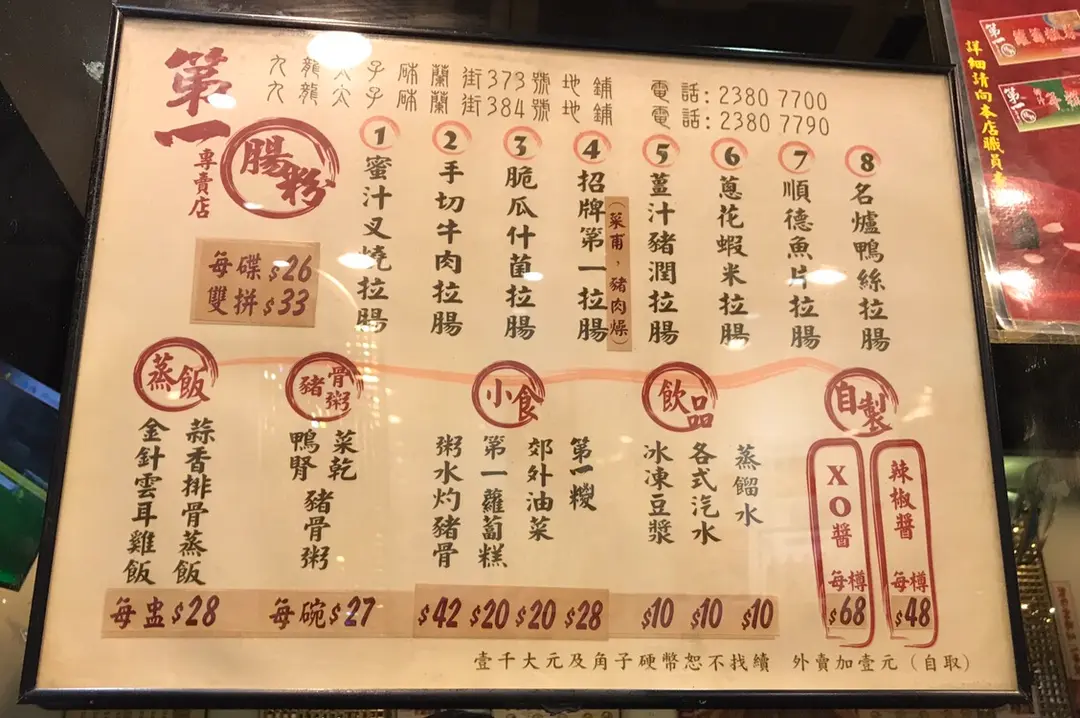 第一
腸粉
專賣店
九龍太子砵蘭街373號地鋪 電話: 2380 7700
九龍太子砵蘭街384號地鋪 電話: 2380 7790
每碟$26
雙拼$33
1 蜜汁叉燒拉腸
2 手切牛肉拉腸
3 脆瓜什菌拉腸
4 招牌第一拉腸
(菜甫，豬肉燥)
5 薑汁豬潤拉腸
6 蔥花蝦米拉腸
7 順德魚片拉腸
8 名爐鴨絲拉腸
蒸飯
蒜香排骨蒸飯
金針雲耳雞飯
每盅$28
豬骨粥
菜乾
鴨腎
豬骨粥
每碗$27
小食
粥水灼豬骨 $42
第一蘿蔔糕 $20
郊外油菜 $20
第一糭 $28
飲品
冰凍豆漿 $10
各式汽水 $10
蒸餾水 $10
自製
XO醬 每樽 $68
辣椒醬 每樽 $48
壹千大元及角子硬幣恕不找續 外賣加壹元 (自取)
第一
第一
詳細請向本店職員